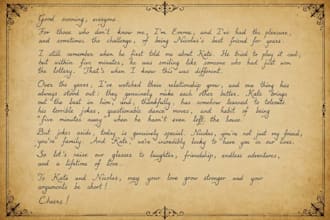 Good evening, everyone.
For those who don't know me, I'm Emma, and I've had the pleasure,
and sometimes the challenge, of being Nicolas's best friend for years.
I still remember when he first told me about Kate. He tried to play it cool,
but within five minutes, he was smiling like someone who had just won
the lottery. That's when I knew this was different.
Over the years, I've watched their relationship grow, and one thing has
always stood out: they genuinely make each other better. Kate brings
out the best in him, and, thankfully, has somehow learned to tolerate
his terrible jokes, questionable dance moves, and habit of being
"five minutes away" when he hasn't even left the house.
But jokes aside, today is genuinely special. Nicolas, you're not just my friend,
you're family. And Kate, we're incredibly lucky to have you in our lives.
So let's raise our glasses to laughter, friendship, endless adventures,
and a lifetime of love.
To Kate and Nicolas, may your love grow stronger and your
arguments be short!
Cheers!